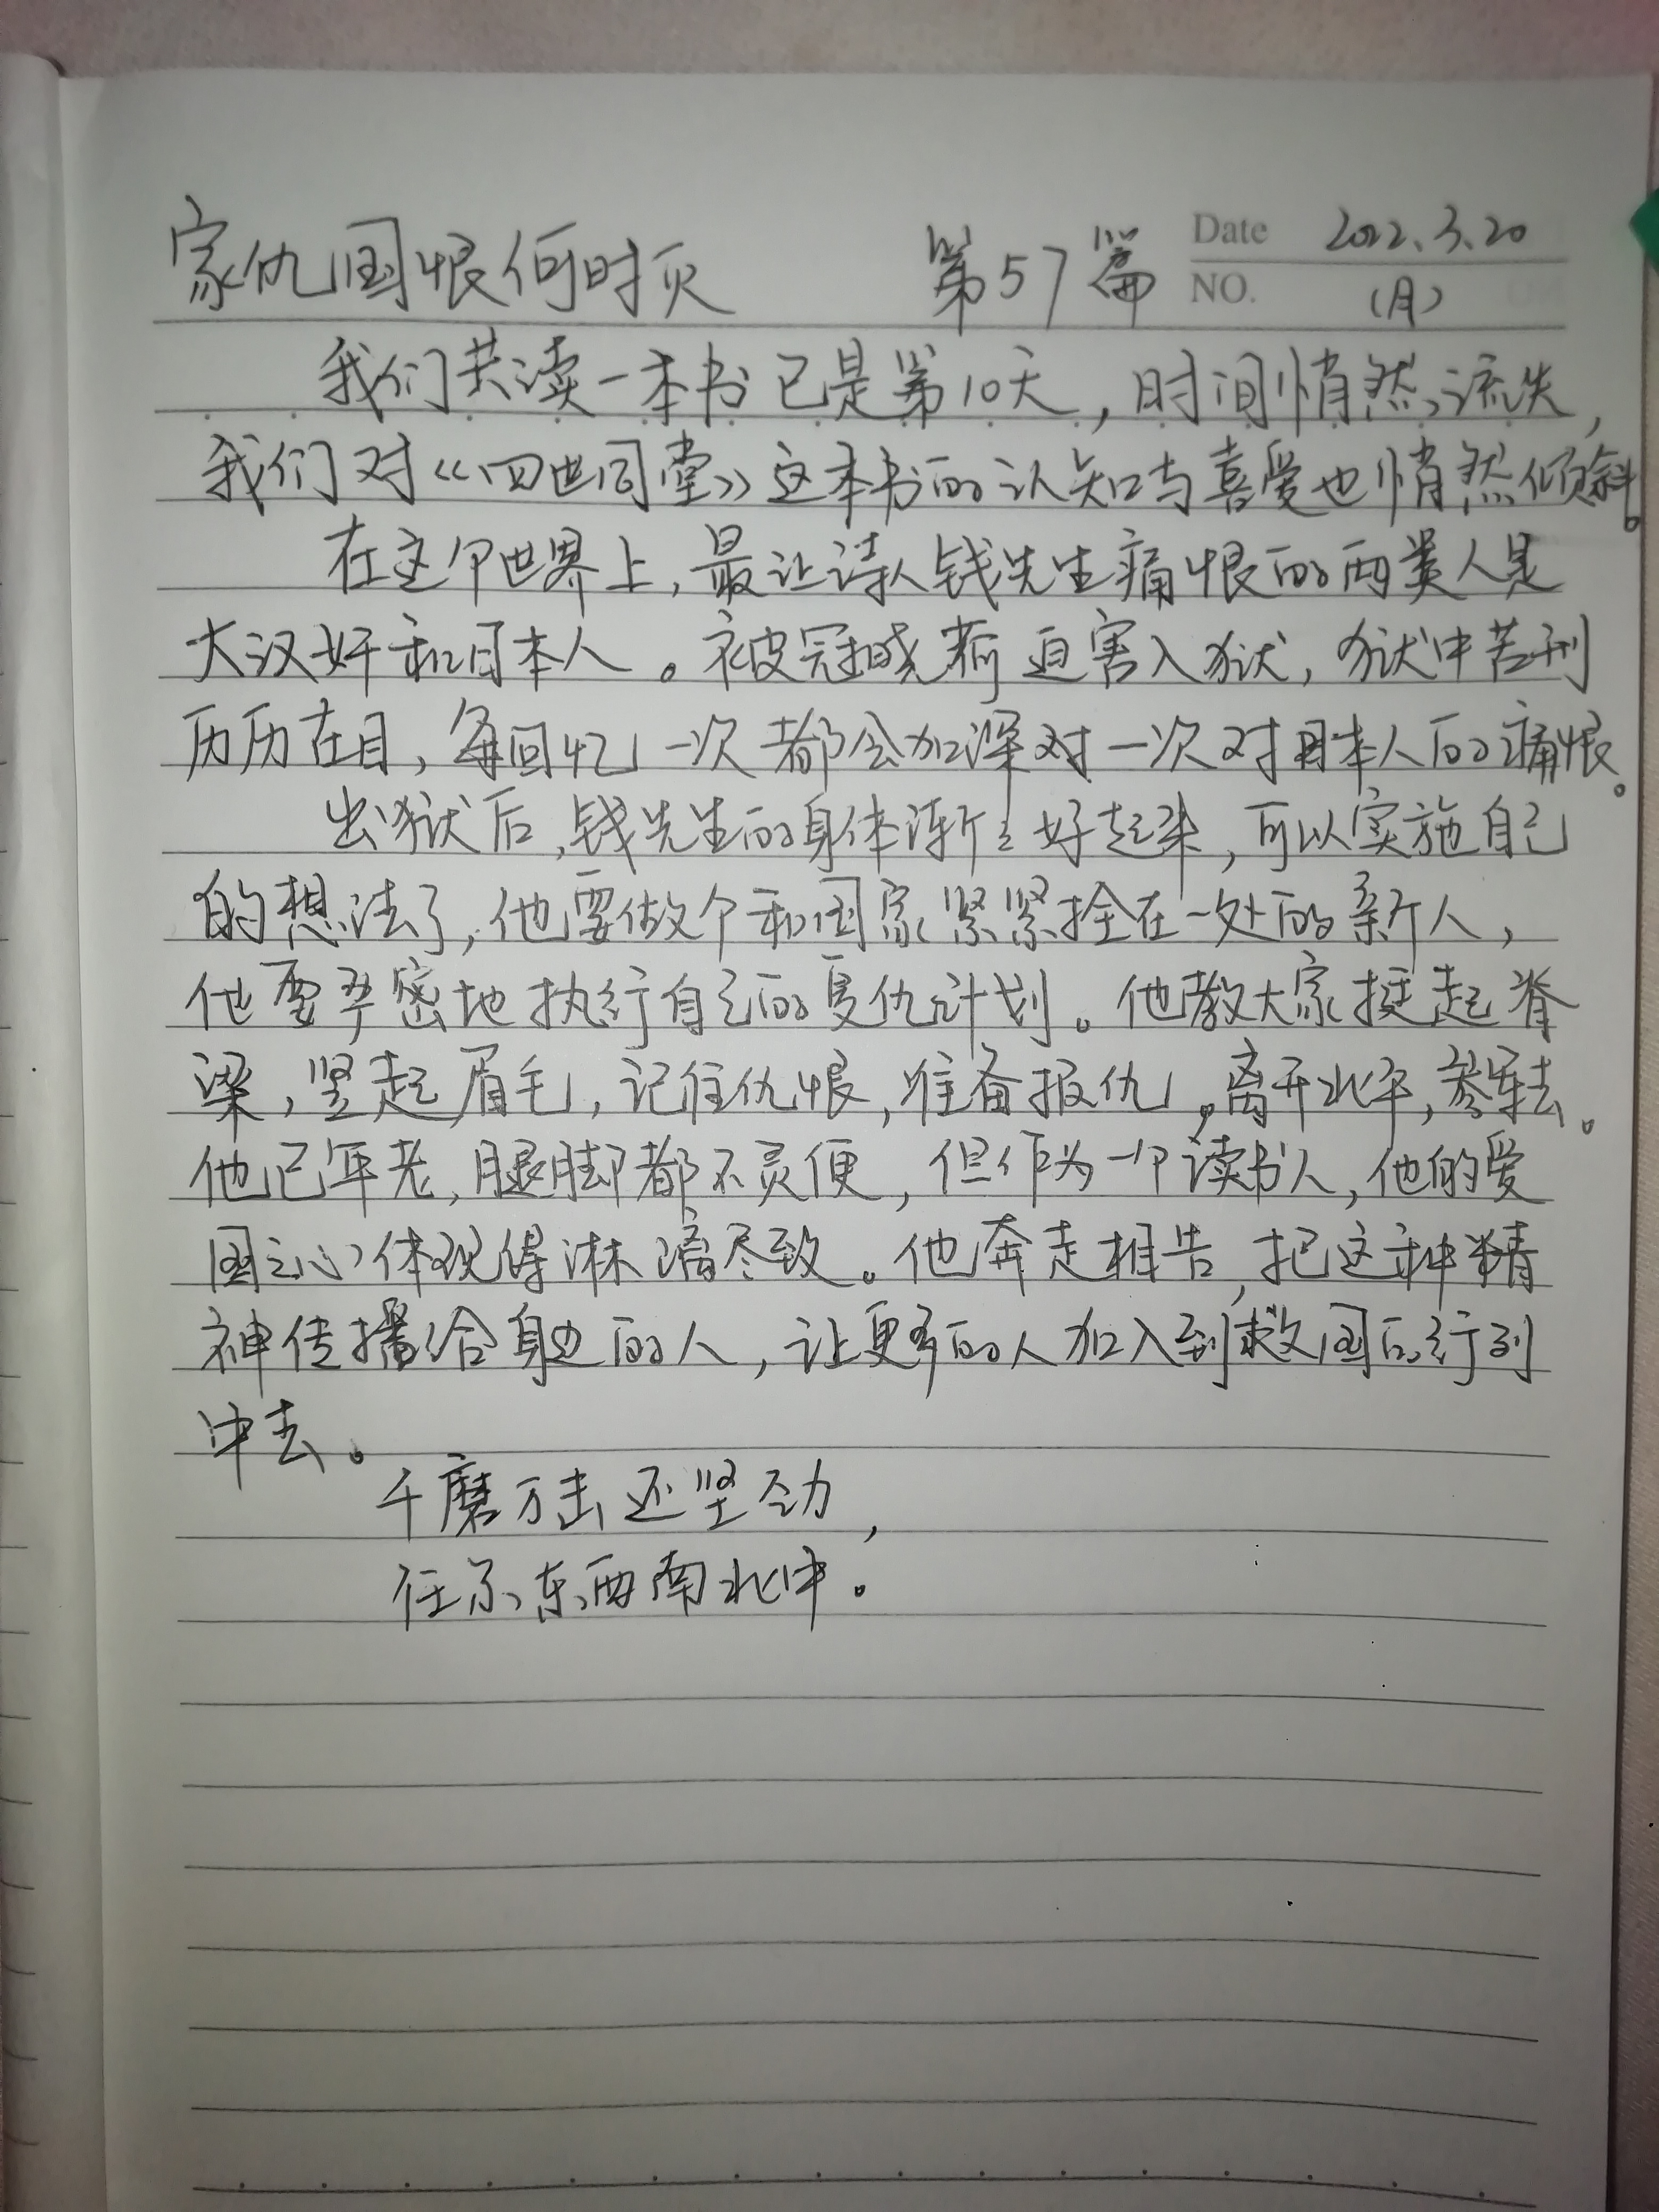 家仇国恨何时灭 第57篇 Date 2022.3.20
NO. (月)
我们共读一本书已是第10天，时间悄然流失，
我们对《四世同堂》这本书的认知与喜爱也悄然倾斜。
在这个世界上，最让诗人钱先生痛恨的两类人是
大汉奸和日本人。被冠晓荷迫害入狱，狱中苦刑
历历在目，每回忆一次都会加深对一次对日本人的痛恨。
出狱后，钱先生的身体渐渐好起来，可以实施自己
的想法了，他要做个和国家紧紧拴在一处的新人，
他要严密地执行自己的复仇计划。他教大家挺起脊
梁，竖起眉毛，记住仇恨，准备报仇，离开北平，参军去。
他已年老，腿脚都不灵便，但作为一个读书人，他的爱
国之心体现得淋漓尽致。他奔走相告，把这种精
神传播给身边的人，让更多的人加入到救国的行列
中去。
千磨万击还坚劲，
任尔东西南北中。